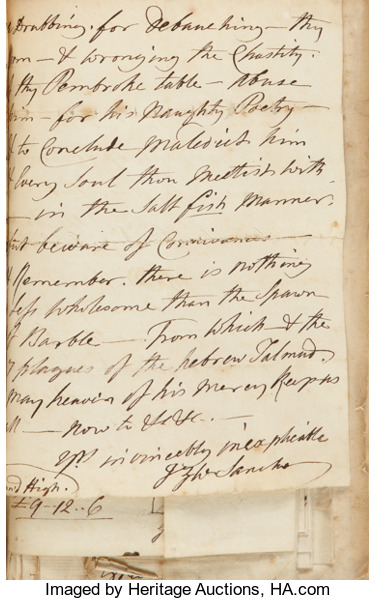 Drubbing. for Debauching — thy
— & wronging the Chastity.
thy Pembroke table — Abuse
him — for his Naughty Poetry —
& to Conclude Maledict him
& Every Soul thou Meettist with
— in the Salt fish Manner.
but beware of Connisances —
Remember. there is nothing
less wholesome than the Spawn
of Barble — From Which & the
plagues of the hebrew Talmud
may heaven of his Mercy Keep us
all — Now to &c &c. —
Yrs. invincebly inexplicable
Sancho
High.
£9-12..6
Imaged by Heritage Auctions, HA.com